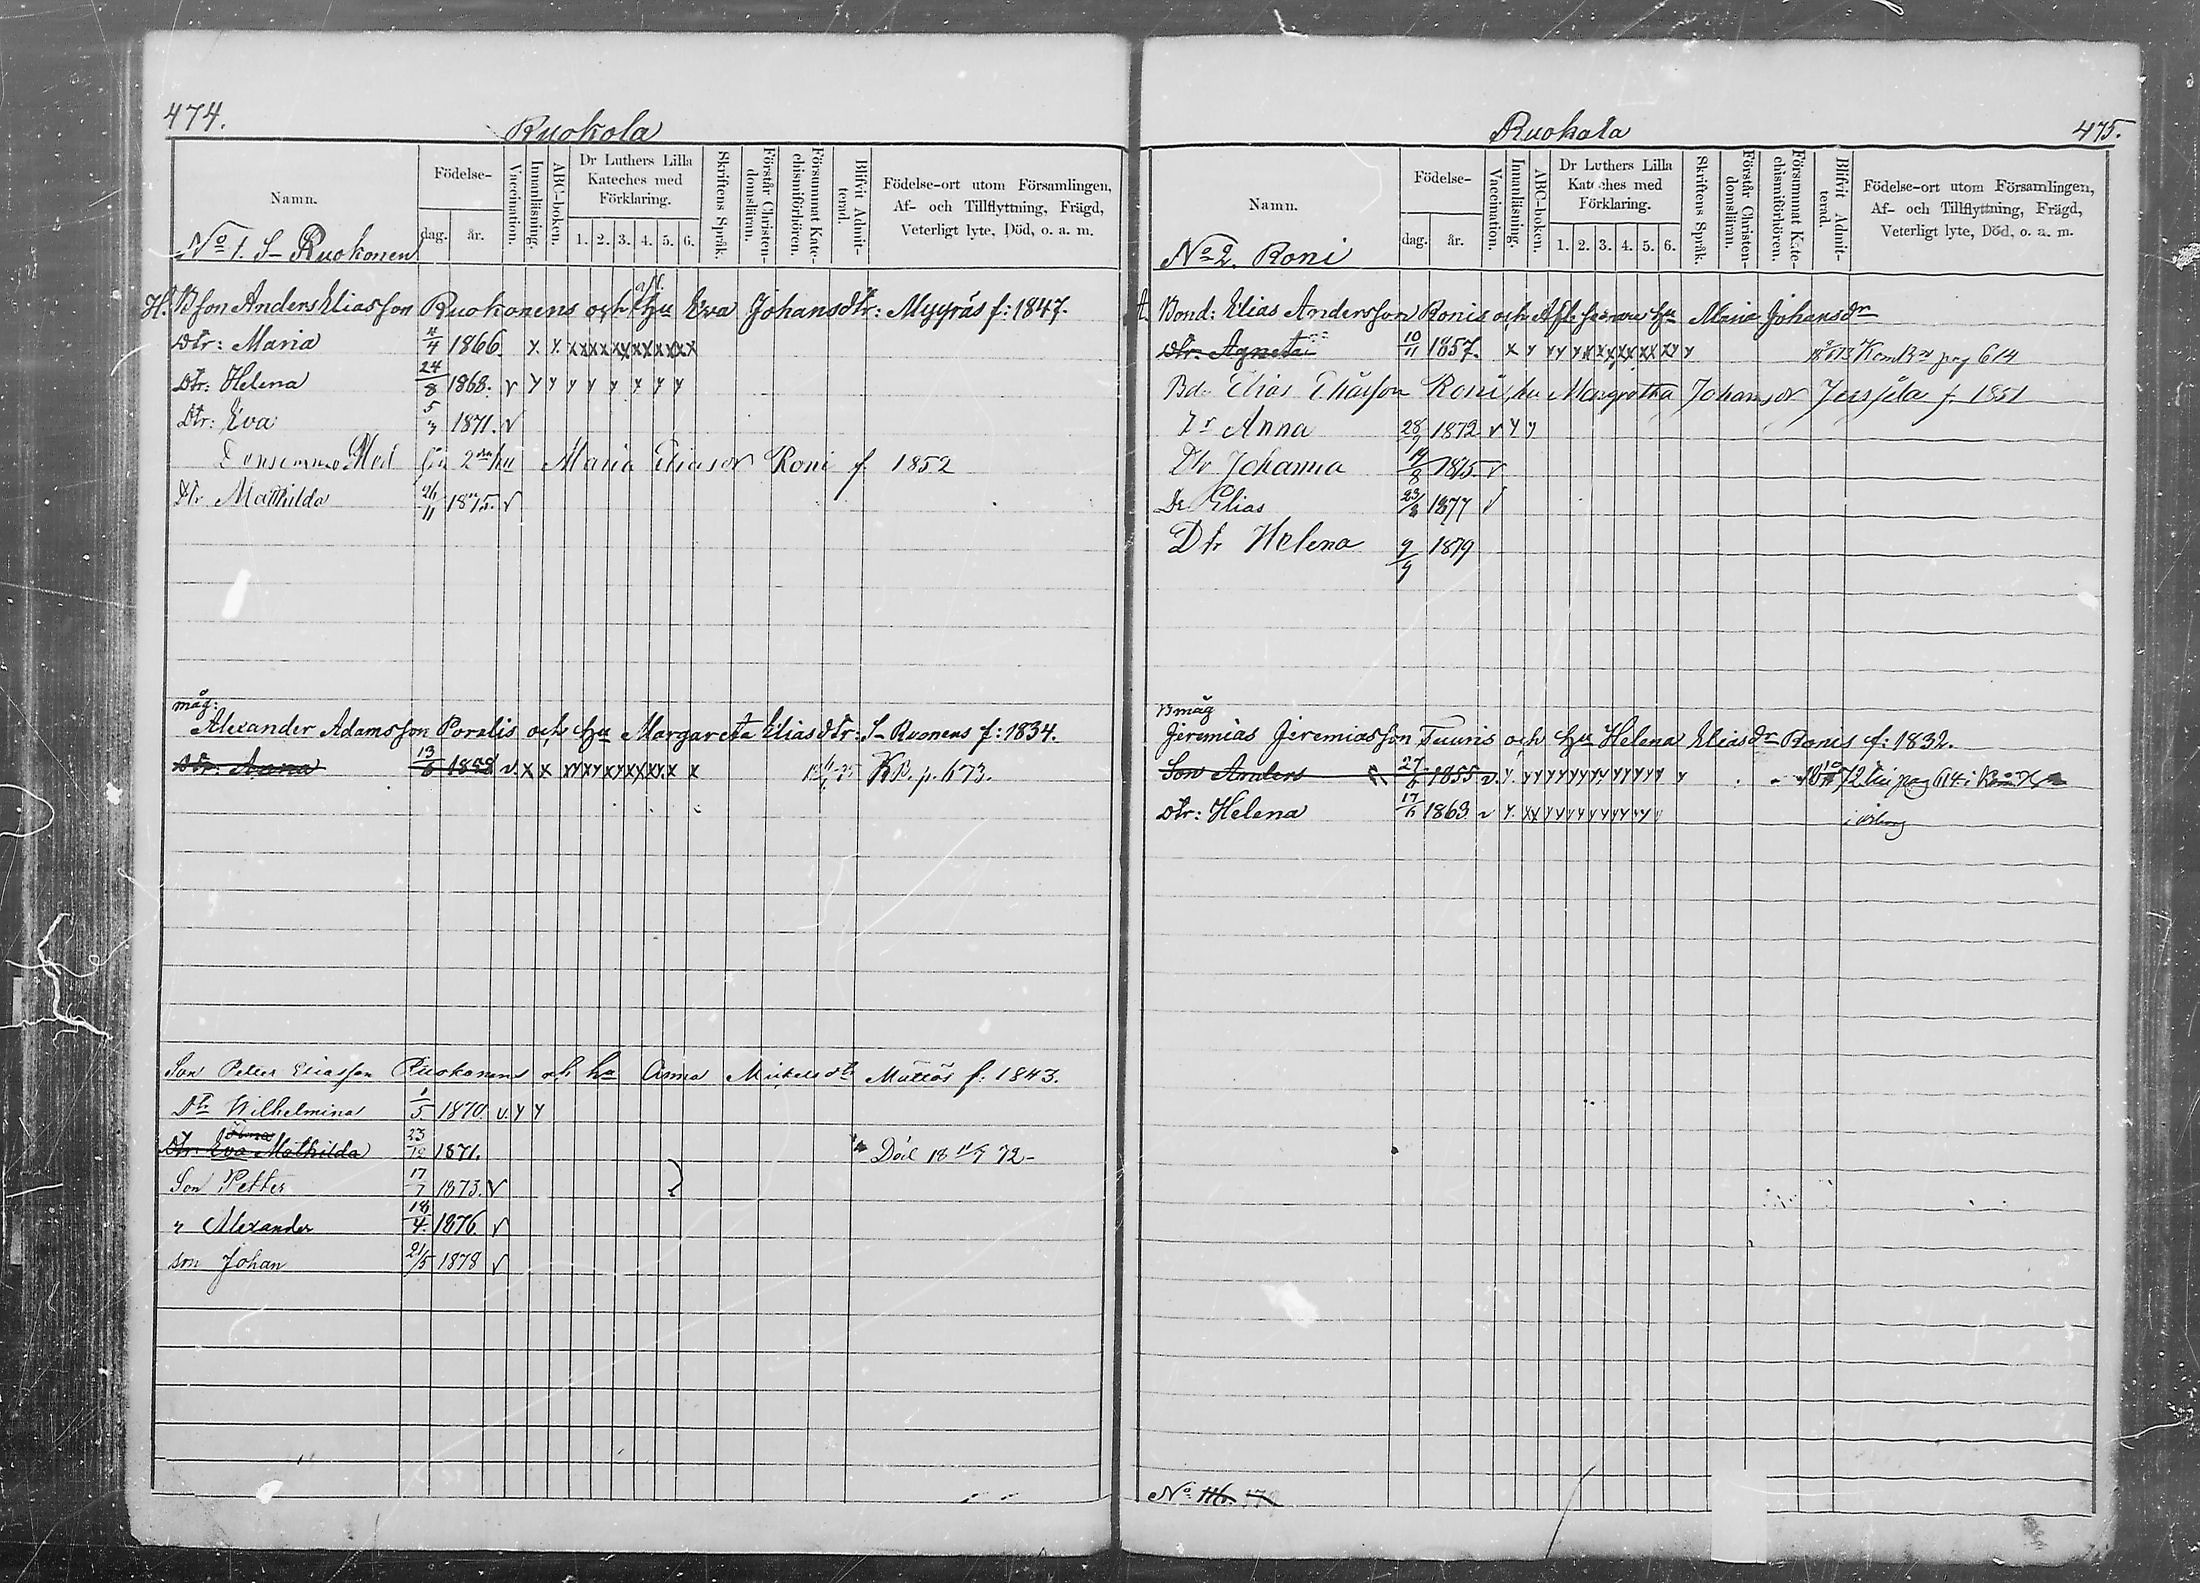 474.
Ruokola
Namn.
Födelse-
dag. år.
Vaccination.
Innanläsning.
ABC-boken.
Dr Luthers Lilla
Kateches med
Förklaring.
1. 2. 3. 4. 5. 6.
Skriftens Språk.
Förstår Christen-
domsläran.
Försummat Kate-
chismiförhören.
Blifvit Admit-
terad.
Födelse-ort utom Församlingen,
Af- och Tillflyttning, Frägd,
Veterligt lyte, Död, o. a. m.
No 1. S- Ruokonen
H. Bson Anders Eliasson Ruokonens och afl. Hu Eva Johansdtr: Myyräs f: 1847.
Dtr: Maria 4/4 1866. y y x x x x x x x x x x x x
Dtr: Helena 24/8 1868. v y y y y y y y y
Dtr: Eva 5/3 1871. v
Densamma Med sin 2dra hu Maria Eliasdr Roni f 1852
Dtr Mathilda 26/11 1875. v
måg:
Alexander Adamsson Poralis och Hu Margareta Eliasdtr: S- Ruonens f: 1834.
Dtr: Anna 13/6 1858 v. x x x y x y x y x x x y x x x KB. p. 673.
Son Petter Eliasson Ruokonens och hu Anna Mickelsdtr Mattös f: 1843.
Dtr Wilhelmina 1/5 1870. v. y y
Dtr: Eva Mathilda 23/12 1871. Död 18 72-
Son Petter 17/7 1873. v
" Alexander 18/4. 1876. v
son Johan 21/5 1878 v
Ruokala
475.
Namn.
Födelse-
dag. år.
Vaccination.
Innanläsning.
ABC-boken.
Dr Luthers Lilla
Kateches med
Förklaring.
1. 2. 3. 4. 5. 6.
Skriftens Språk.
Förstår Christen-
domsläran.
Försummat Kate-
chismiförhören.
Blifvit Admit-
terad.
Födelse-ort utom Församlingen,
Af- och Tillflyttning, Frägd,
Veterligt lyte, Död, o. a. m.
No 2. Roni
Bond: Elias Andersson Ronis och Afl. Hu Maria Johansdr
Dtr: Agneta 10/11 1857. x y y y y x x x y x x x x x y y pag 614
Bd. Elias Eliasson Roni, hu Margretha Johansdr f. 1851
Dr Anna 28/7 1872 v y y
Dtr Johanna 14/8 1875. v
Elias 23/8 1877 v
Dtr Helena 9/9 1879
Bmåg
Jeremias Jeremiasson Tuuris och Hu Helena Eliasdr Ronis f: 1832.
Son Anders 27/8 1855 v. y. y y y y y y y y y y y y y 72 pag 614
Dtr: Helena 17/6 1863. v y. x x y y y y y y y y y
No 116.